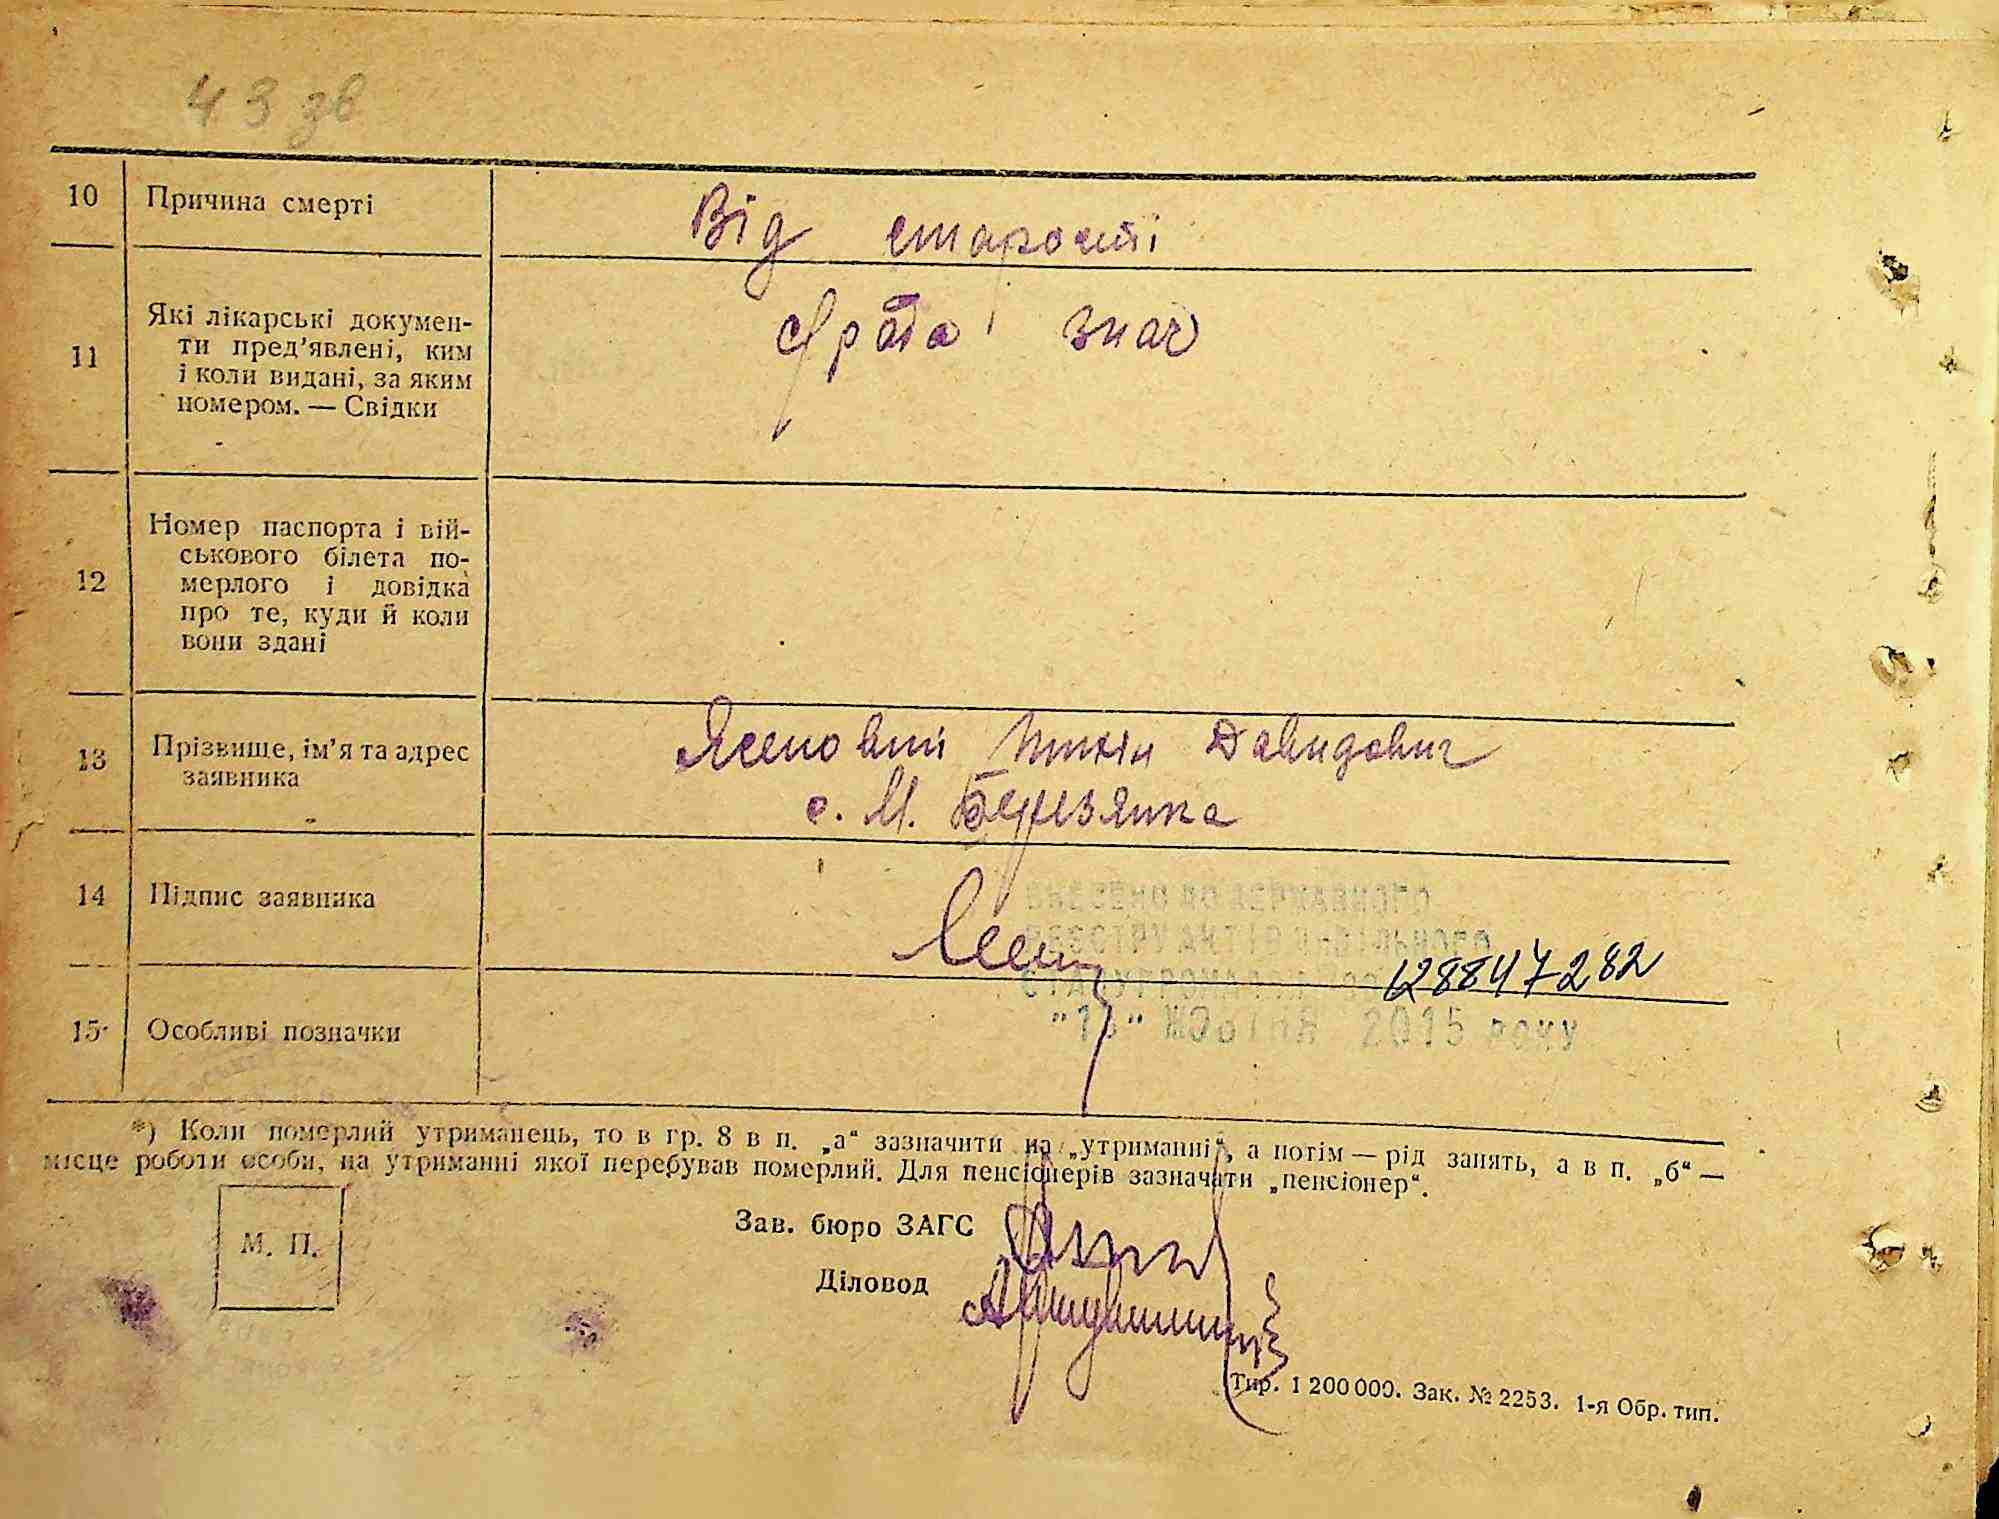 43 зв
10 Причина смерті Від старості
11 Які лікарські докумен-
ти пред'явлені, ким
і коли видані, за яким
номером. — Свідки
знач
12 Номер паспорта і вій-
ськового білета по-
мерлого і довідка
про те, куди й коли
вони здані
13 Прізвище, ім'я та адрес
заявника
Давидович
с. М. Березянка
14 Підпис заявника
ВНЕСЕНО ДО ДЕРЖАВНОГО
РЕЄСТРУ АКТІВ ЦИВІЛЬНОГО
СТАНУ ГРОМАДЯН
128847282
15 Особливі позначки
жовтня 2015 року
*) Коли померлий утриманець, то в гр. 8 в п. „а“ зазначити на „утриманні“, а потім — рід занять, а в п. „б“ —
місце роботи особи, на утриманні якої перебував померлий. Для пенсіонерів зазначати „пенсіонер“.
М. П.
Зав. бюро ЗАГС
Діловод
Тир. 1 200 000. Зак. № 2253. 1-я Обр. тип.